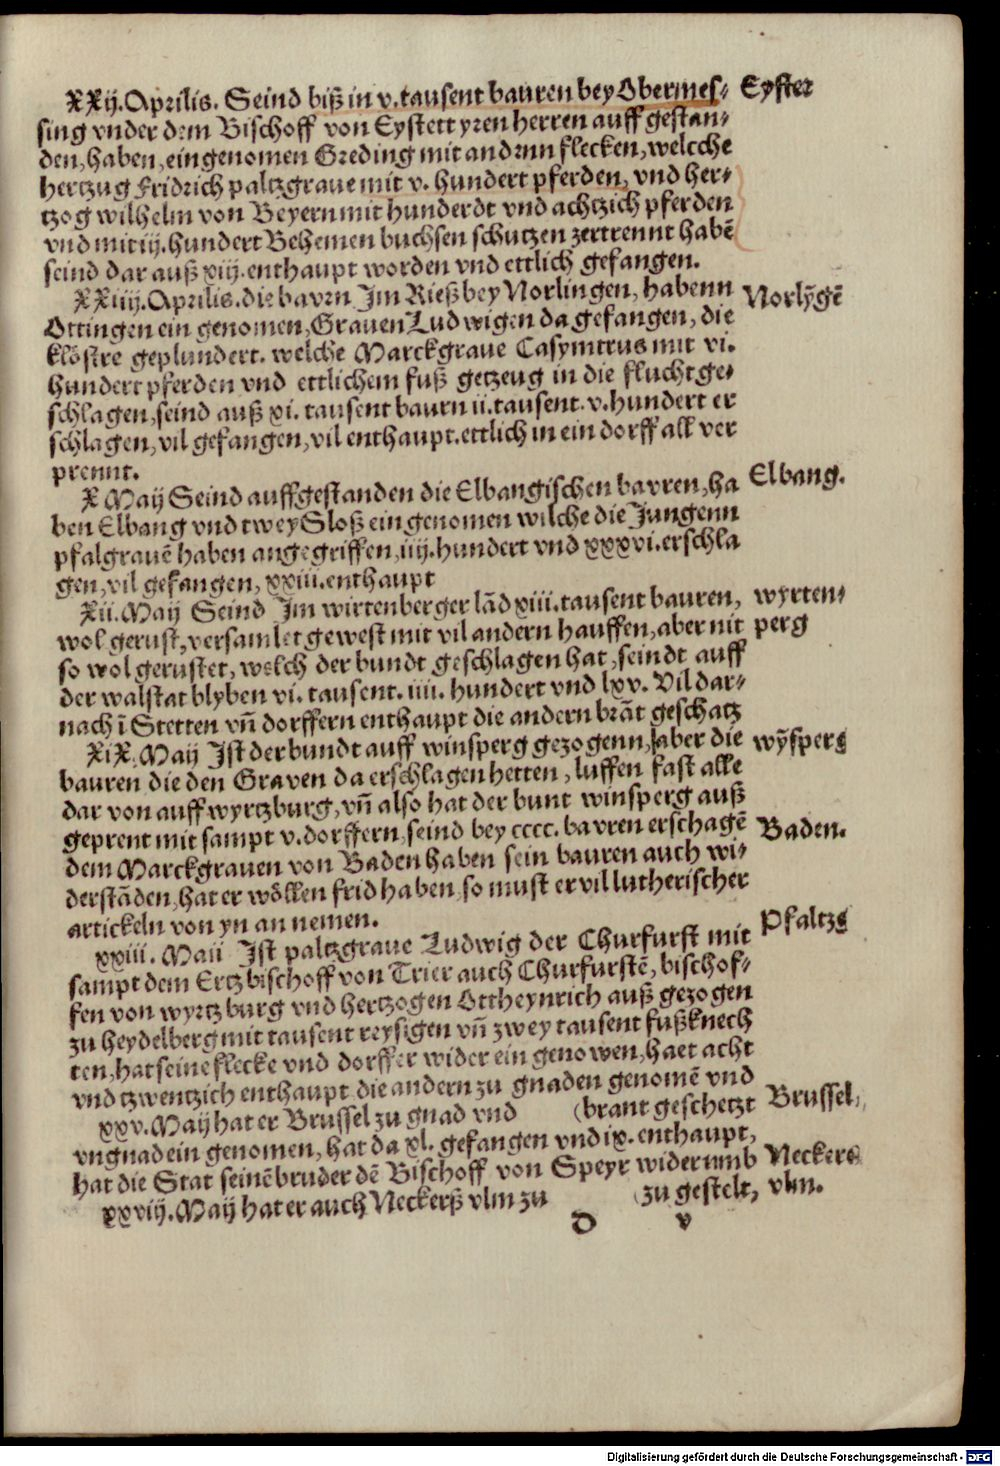 XXij. Aprilis. Seind biß in v. tausent bauren bey Obermes- Eyster
sing vnder dem Bischoff von Eystett yren herren auff gestan-
den, haben, eingenomen Greding mit andrnn flecken, welcche
hertzug Fridrich paltzgraue mit v. hundert pferden, vnd her-
tzog wilhelm von Beyern mit hunderdt vnd achtzich pferden
vnd mit iij. hundert Behemen buchsen schutzen zertrennt habē
seind dar auß xiij. enthaupt worden vnd ettlich gefangen.
XXiiij. Aprilis. die bavrn Jm Rieß bey Norlingen, habenn Norlȳgē
Ottingen ein genomen, Grauen Ludwigen da gefangen, die
klöstre geplundert. welche Marckgraue Casymirus mit vi.
hundert pferden vnd ettlichem fuß getzeug in die flucht ge-
schlagen, seind auß xi. tausent baurn ii. tausent. v. hundert er
schlagen, vil gefangen, vil enthaupt. ettlich in ein dorff all ver
prennt.
X Maij Seind auffgestanden die Elbangischen bavren, ha Elbang.
ben Elbang vnd twey Sloß ein genomen wilche die Jungenn
pfalgrauē haben angegriffen, iiij. hundert vnd xxxvi. erschla
gen, vil gefangen, xxiii. enthaupt
Xii. Maij Seind Jm wirtenberger lād xiii. tausent bauren, wyrten-
wol gerust, versamlet gewest mit vil andern hauffen, aber nit perg
so wol gerustet, welch der bundt geschlagen hat, seindt auff
der walstat blyben vi. tausent. iiii. hundert vnd lxv. Vil dar-
nach ī Stetten vñ dorffern enthaupt die andern brāt geschatz
XiX. Maij Jst der bundt auff winsperg gezogenn, aber die wȳsperg
bauren die den Graven da erschlagen hetten, luffen fast alle
dar von auff wyrtzburg, vñ also hat der bunt winsperg auß
geprent mit sampt v. dorffern, seind bey cccc. bavren erschagē Baden.
dem Marckgrauen von Baden haben sein bauren auch wi-
derstāden, hat er wöllen frid haben, so must er vil lutherischer
artickeln von yn an nemen. Pfaltzg
xxiii. Maii Jst paltzgraue Ludwig der Churfurst mit
sampt dem Ertzbischoff von Trier auch Churfurstē, bischof-
fen von wyrtzburg vnd hertzogen Ottheynrich auß gezogen
zu heydelberg mit tausent reysigen vñ zwey tausent fußknech
ten, hat seine flecke vnd dorffer wider ein genowen, haet acht
vnd tzwentzich enthaupt die andern zu gnaden genomē vnd
xxv. Maij hat er Brussel zu gnad vnd (brant geschetzt Brussel,
vngnad ein genomen, hat da xl. gefangen vnd ix. enthaupt,
hat die Stat seinē bruder dē Bischoff von Speyr widerumb Neckers
xxviij. Maij hat er auch Neckerß vlm zu (zu gestelt, vlm.
D v
Digitalisierung gefördert durch die Deutsche Forschungsgemeinschaft - DFG